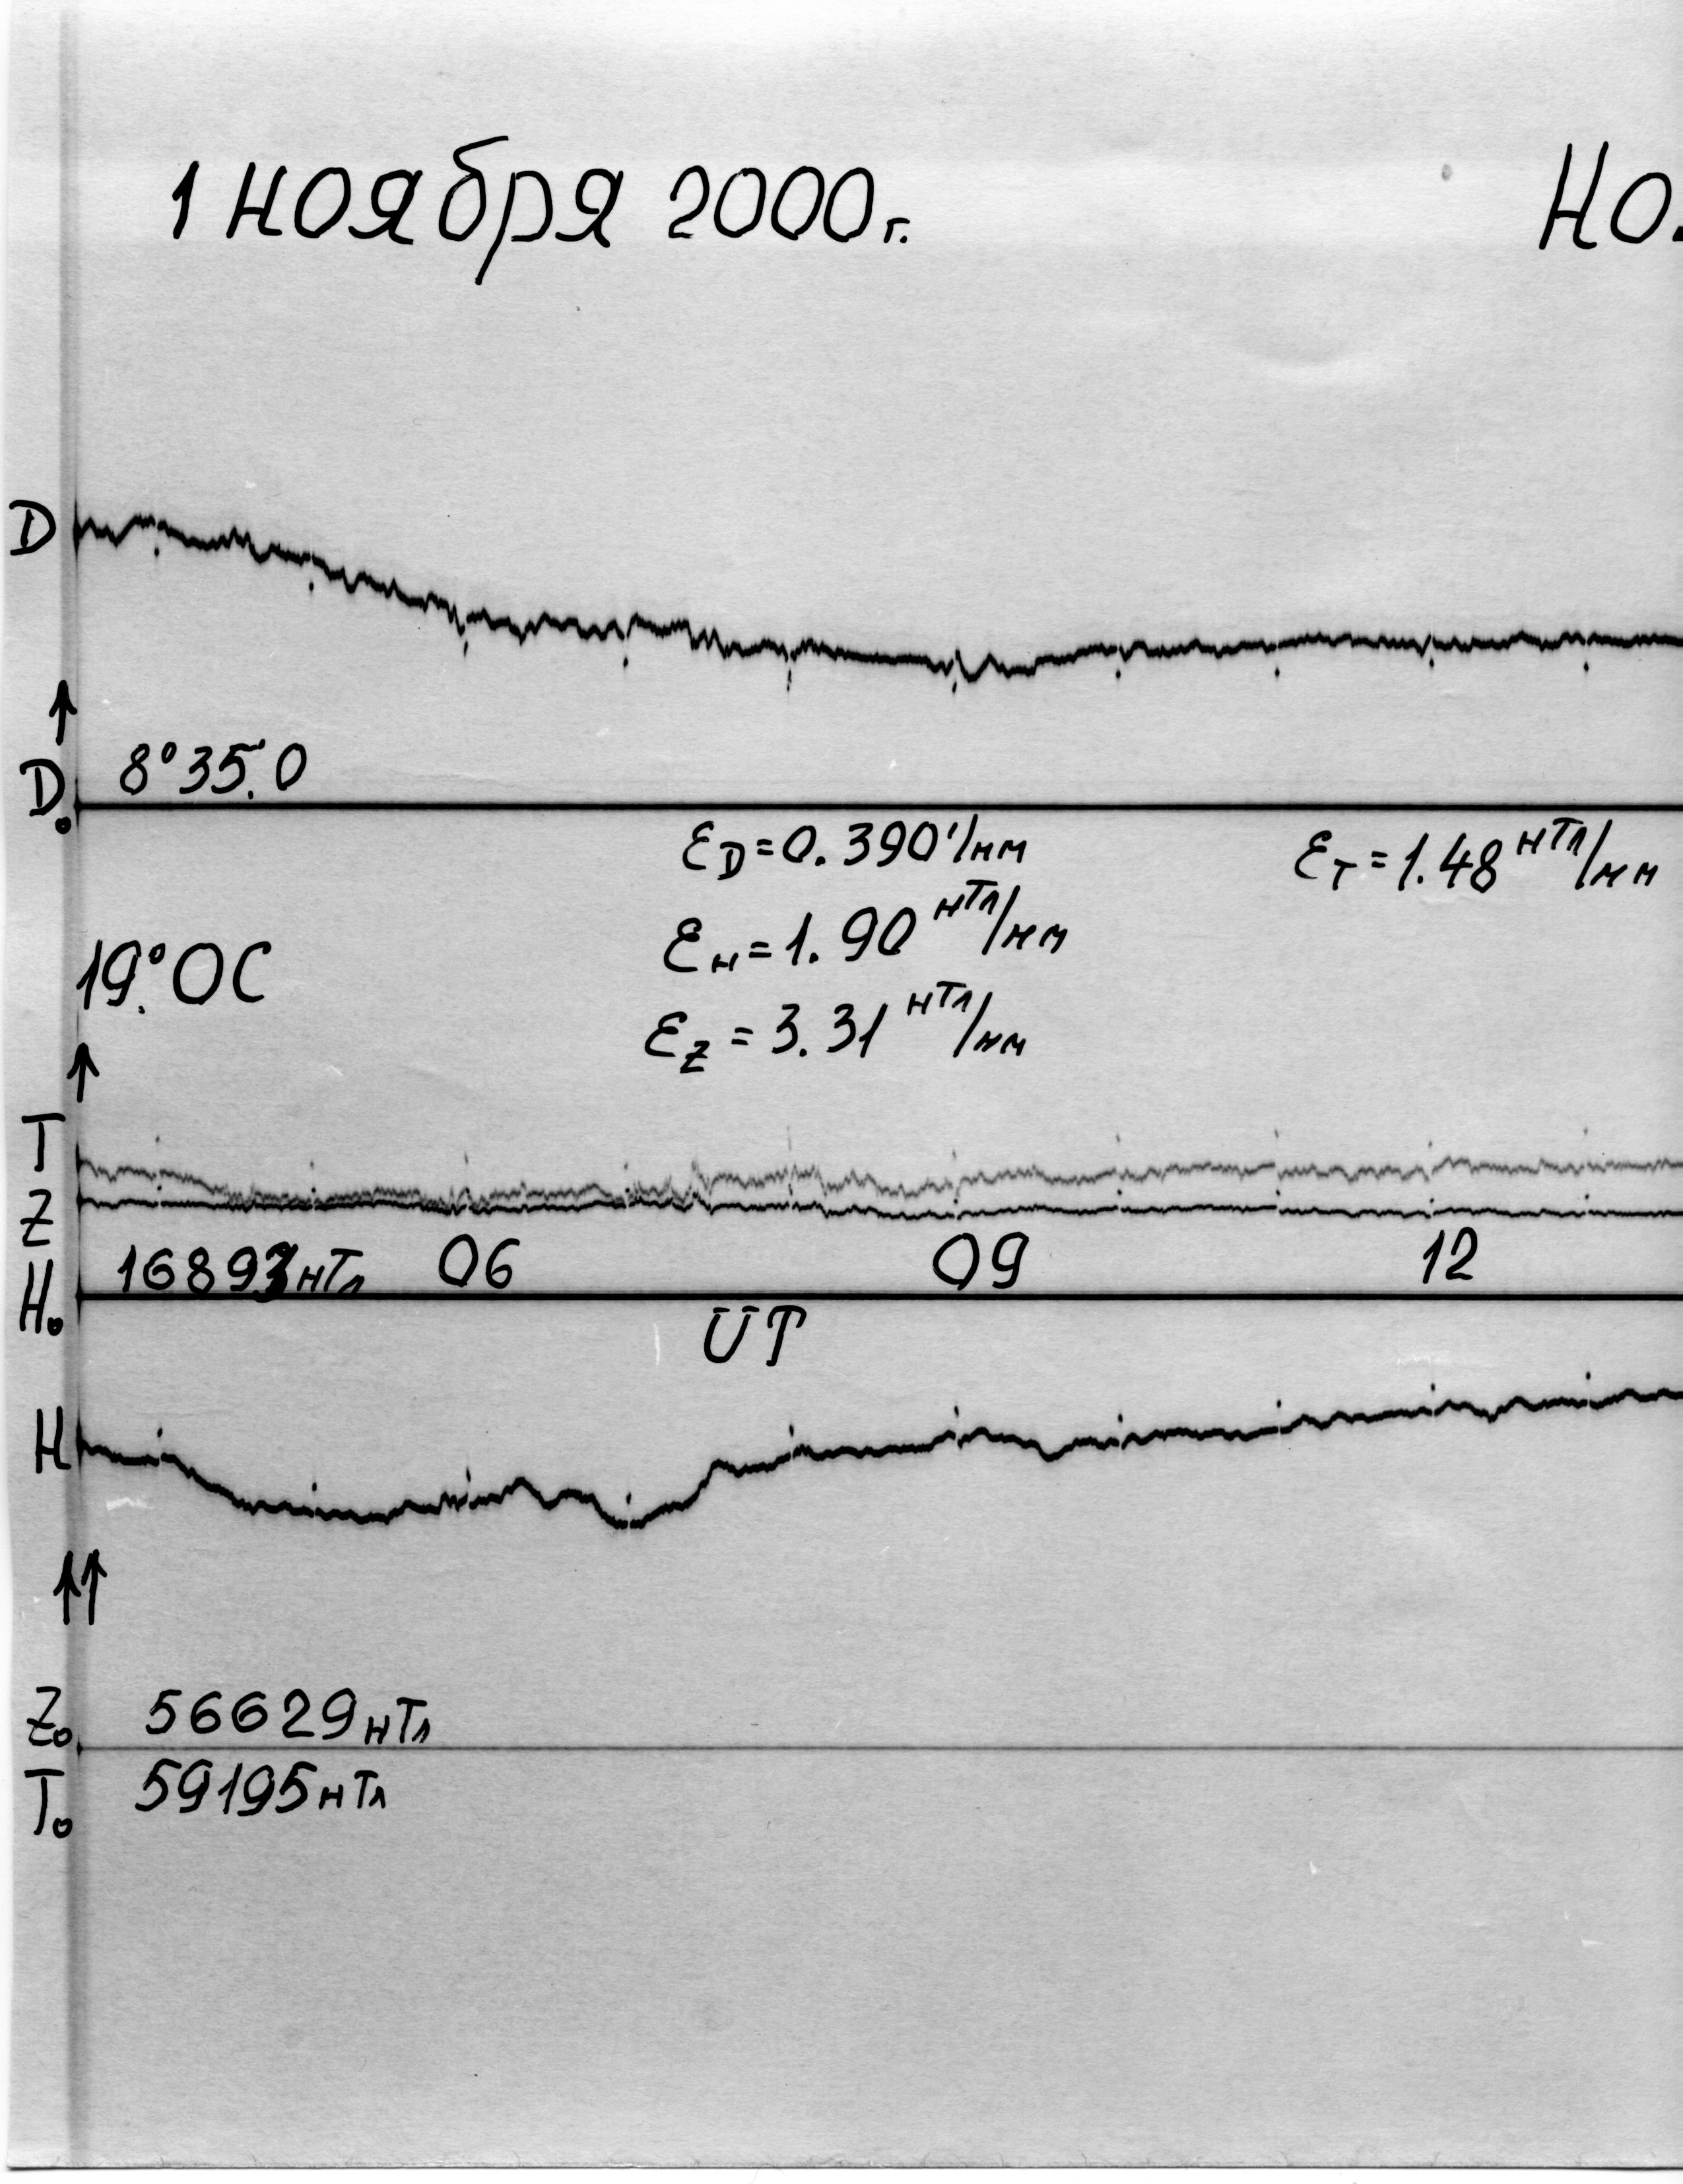 1 ноября 2000г.
Но.
D
8°35.'0
D₀
εD=0.390'/мм
εT=1.48 нТл/мм
εH=1.90 нТл/мм
19.°0C
εZ=3.31 нТл/мм
T
Z
06 09 12
H₀
UT
H
Z₀ 56629нТл
T₀ 59195нТл